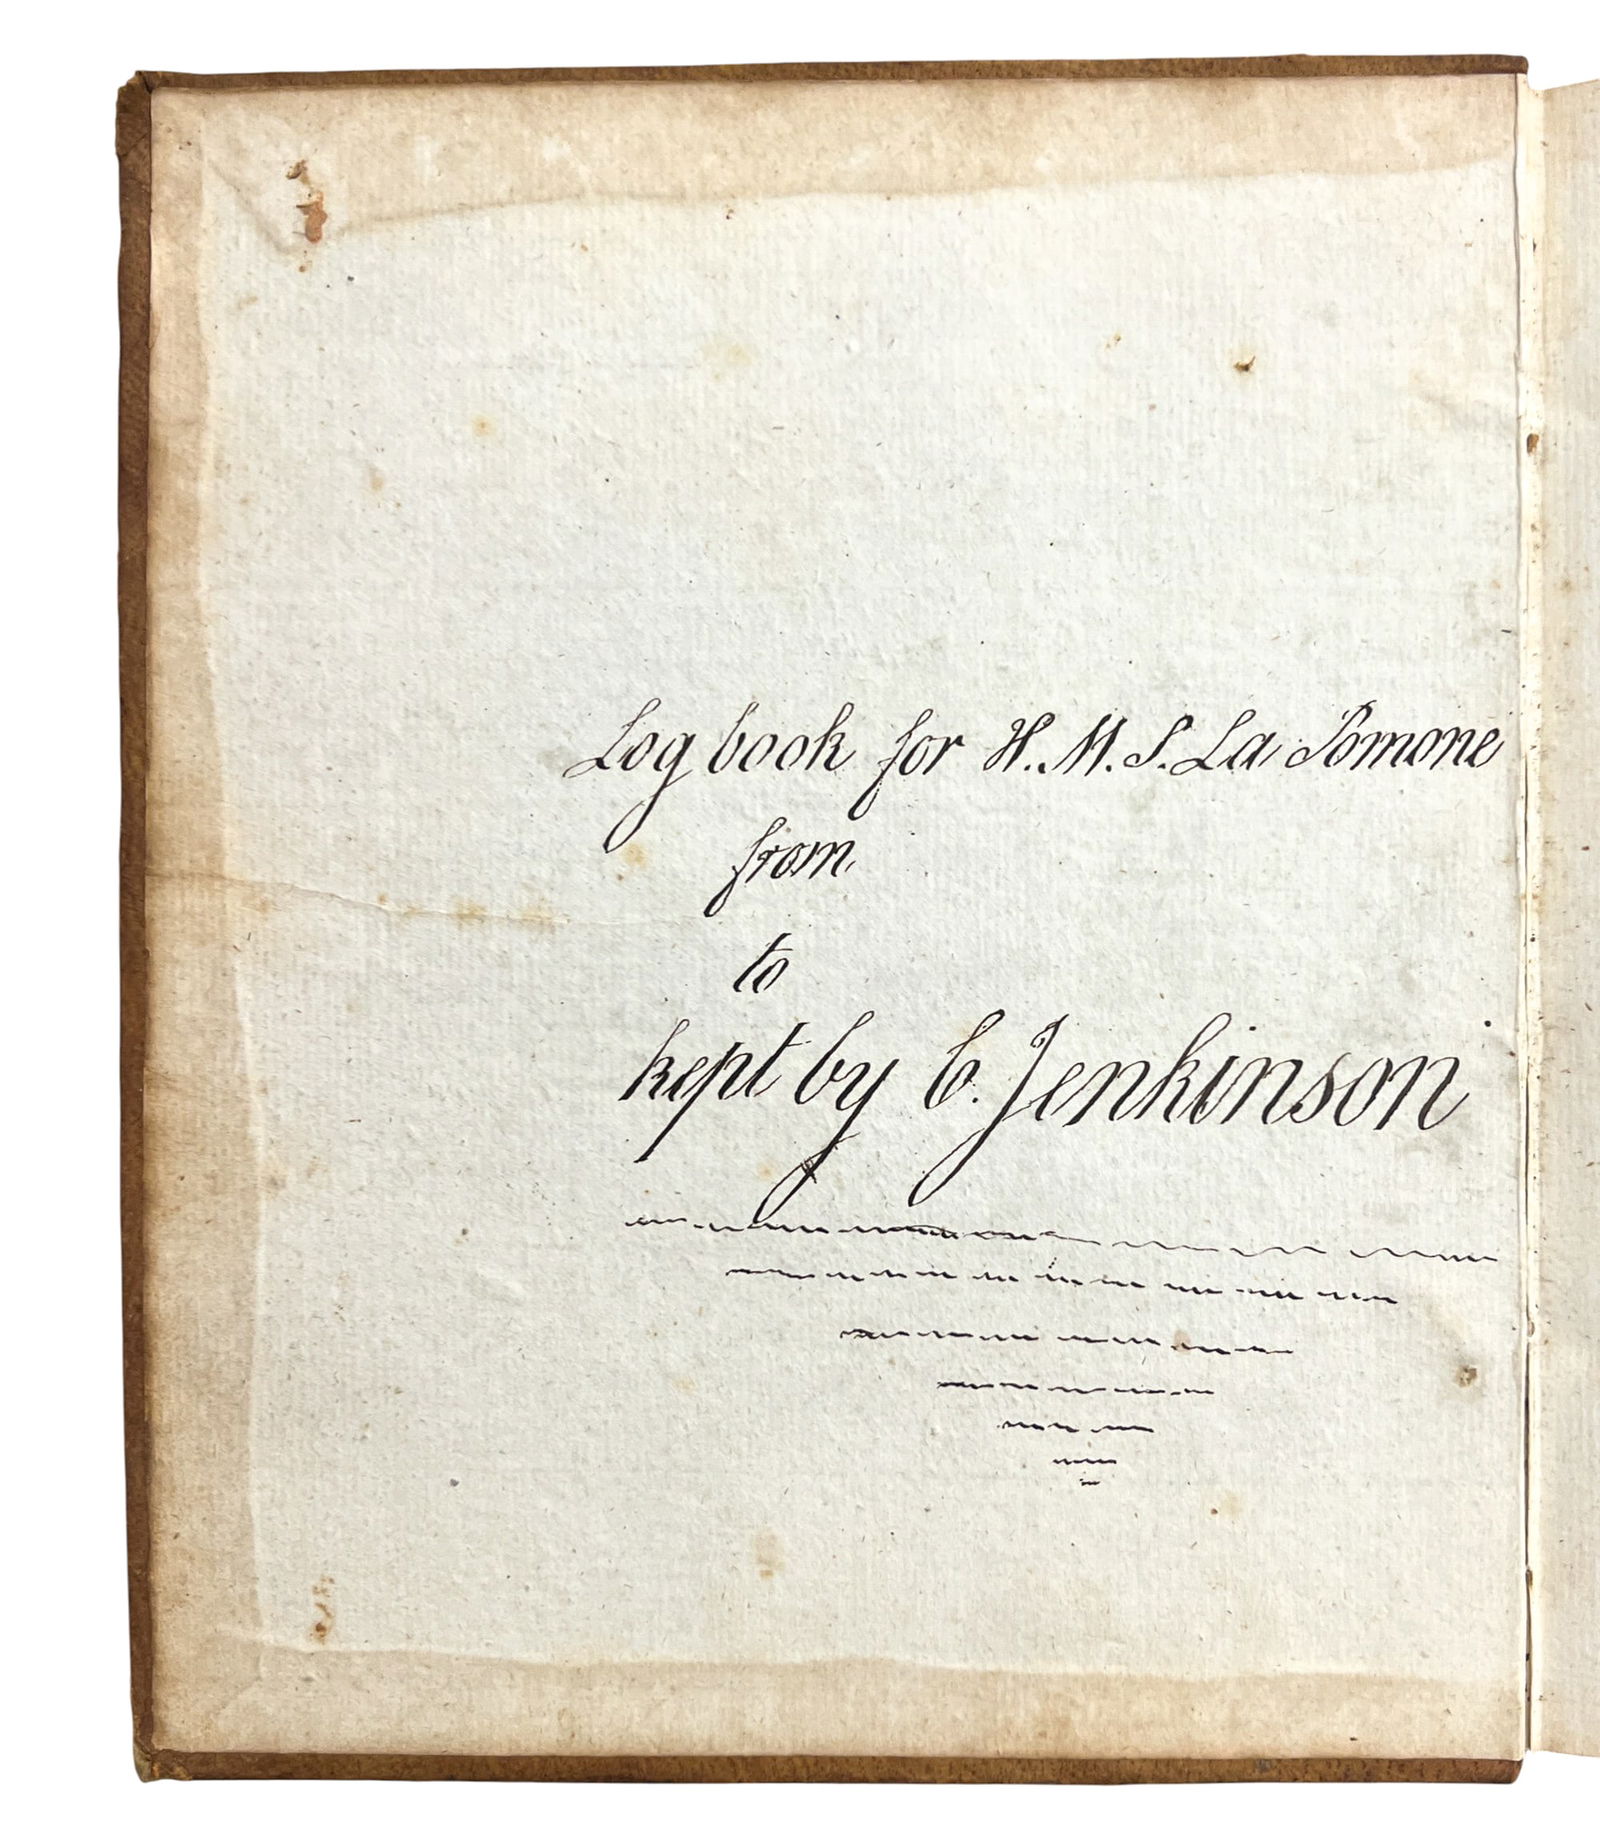 Log book for H.M.S. La Pomone
from
to
kept by C. Jenkinson